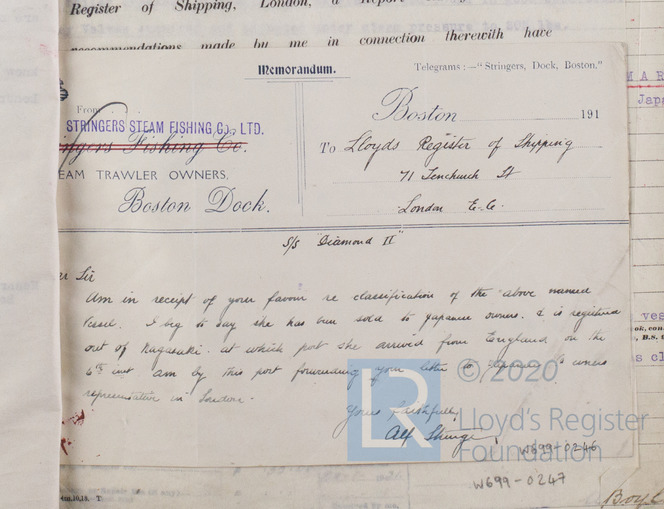 Register of Shipping, London, a Report
recommendations made by me in connection therewith have
Memorandum.
Telegrams:—"Stringers, Dock, Boston."
From
STRINGERS STEAM FISHING Co., LTD.
ingers Fishing Co.
EAM TRAWLER OWNERS,
Boston Dock.
Boston 191
To Lloyds Register of Shipping
71 Fenchurch St
London E.C.
S/S "Diamond II"
Sir
Am in receipt of your favour re classification of the above named
Vessel. I beg to say she has been sold to Japanese owners. & is registered
out of Nagasaki. at which port she arrived from England on the
6th inst am by this post forwarding your letter to owners
representative in London.
Yours faithfully
Alf Stringer
© 2020
LR
Lloyd's Register
Foundation
W699-0246
W699-0247
MAR
Japa
ves
Boyl